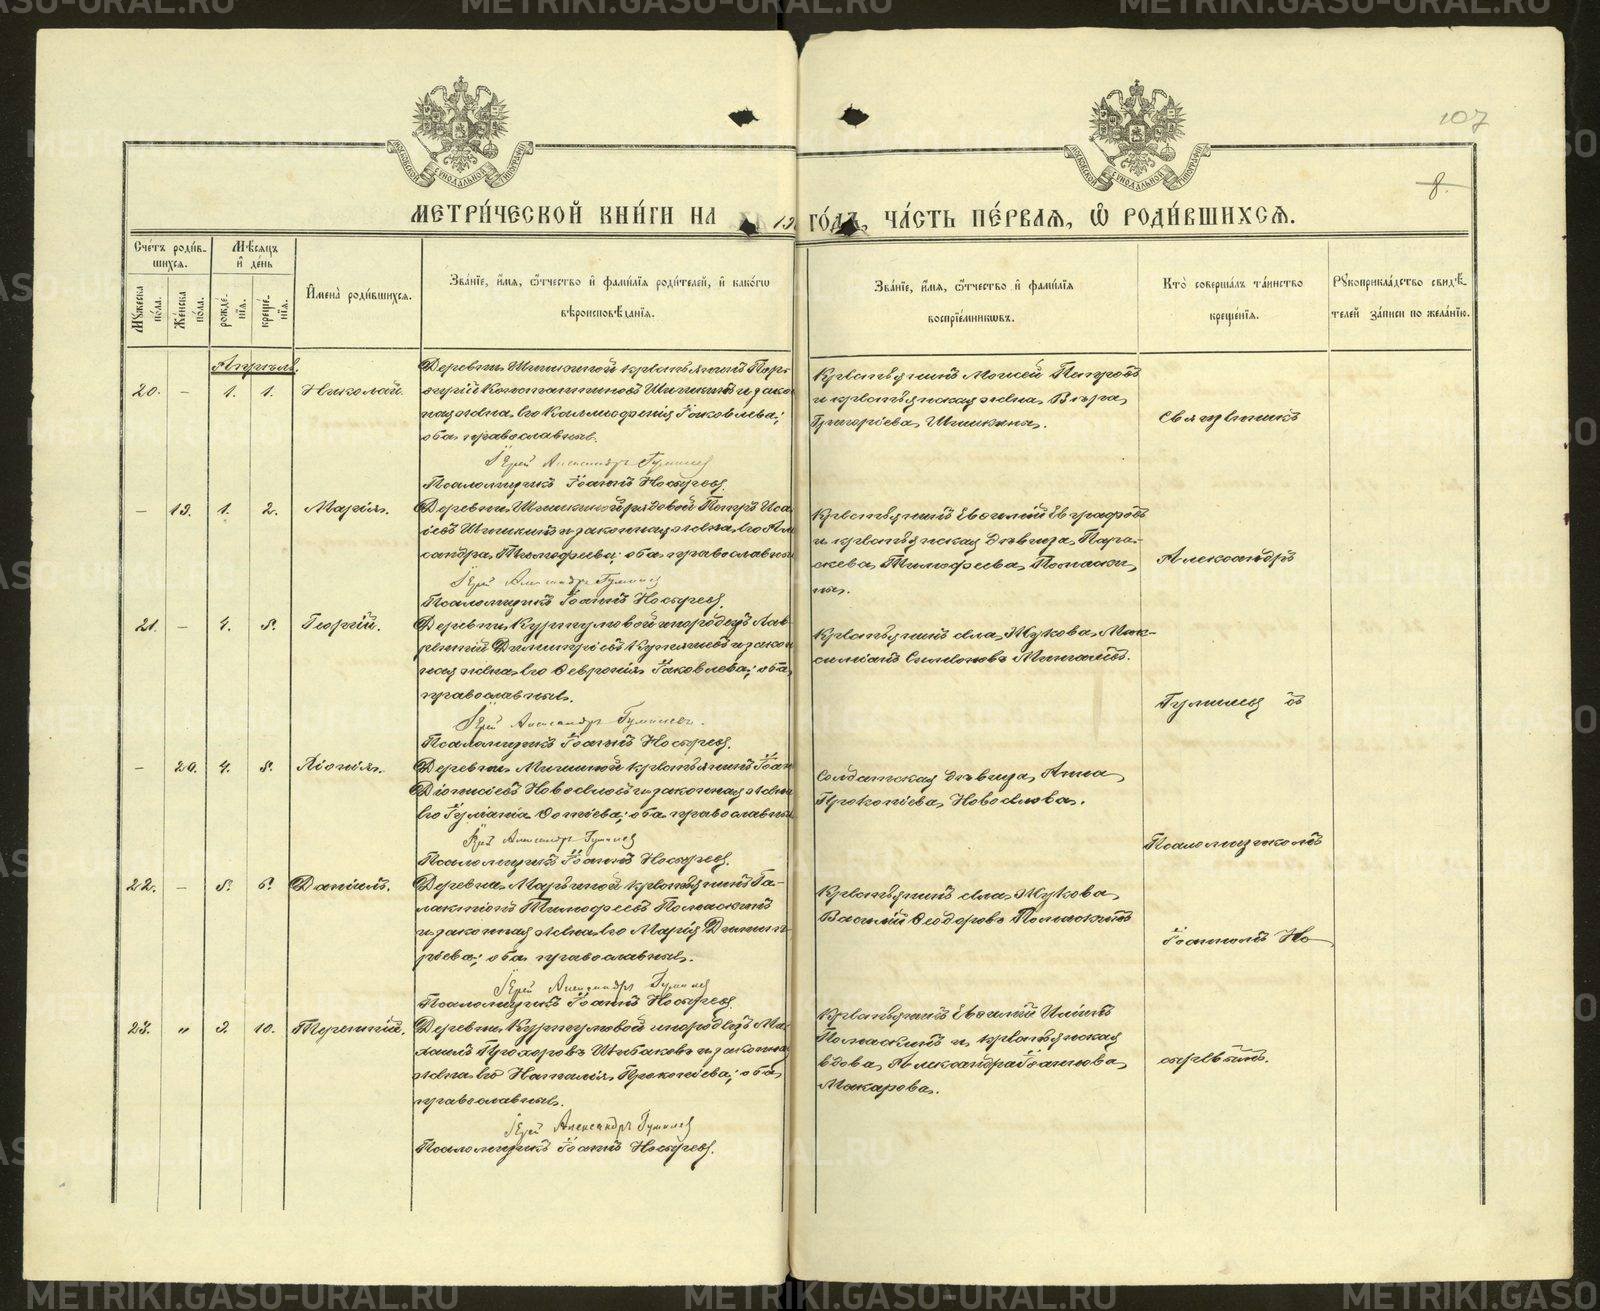 107
8.
МОСКОВСКОЙ СѴНОДАЛЬНОЙ ТИПОГРАФІИ
МОСКОВСКОЙ СѴНОДАЛЬНОЙ ТИПОГРАФІИ
МЕТРИ́ЧЕСКОЙ КНИ́ГИ НА 19 ГО́ДЪ, ЧА́СТЬ ПЕ́РВАЯ, Ѽ РОДИ́ВШИХСѦ.
Сче́тъ роди́в-
шихсѧ.
Мꙋ́жеска по́ла.
Же́нска по́ла.
Мѣ́сѧцъ
и҆ де́нь
рожде́-
нїѧ.
креще́-
нїѧ.
И҆мена̀ роди́вшихсѧ.
Зва́нїе, и҆́мѧ, ѻ҆́тчество и҆ фами́лїѧ роди́телей, и҆ како́гѡ
вѣроисповѣ́данїѧ.
Зва́нїе, и҆́мѧ, ѻ҆́тчество и҆ фами́лїѧ
воспрїе́мникѡвъ.
Кто̀ соверша́лъ та́инство
креще́нїѧ.
Рꙋкоприкла́дство свидѣ́-
телей за́писи по жела́нїю.
Апрѣль.
20. – 1. 1. Николай.
Деревни Шишкиной крестьянинъ Пор-
фирій Константиновъ Шишкинъ и закон
ная жена его Каллисѳенія Іаковлева;
оба православные.
Іерей Александръ Гумилев
Псаломщикъ Іоаннъ Носыревъ.
Крестьянинъ Моисей Петровъ
и крестьянская жена Вѣра
Григоріева Шишкины.
– 19. 1. 2. Марія.
Деревни Шишкиной рядовой Петръ Иса
іевъ Шишкинъ и законная жена его Але
сандра Тимофеева; оба православны
Іерей Александръ Гумилев
Псаломщикъ Іоаннъ Носыревъ.
Крестьянинъ Евѳимій Евграфовъ
и крестьянская дѣвица Пара-
скева Тимофеева Помаски-
ны.
21. – 4. 5. Георгій.
Деревни Куртумовой инородецъ Лав-
рентій Димитріевъ и закон
ная жена его Ѳевронія Іаковлева; оба
православные.
Іерей Александръ Гумилевъ.
Псаломщикъ Іоаннъ Носыревъ.
Крестьянинъ села Жукова Мак-
симіанъ Симеоновъ
– 20. 4. 5. Ліонія.
Деревни крестьянинъ Іоан
Діонисіевъ Новоселовъ и законная жена
его Іуліанія Ѳотіева; оба православны
Іерей Александръ Гумилев
Псаломщикъ Іоаннъ Носыревъ.
Солдатская дѣвица Анна
Прокопіева Новоселова.
22. – 5. 6. Даніилъ.
Деревни Марьиной крестьянинъ Га-
лактіонъ Тимофеевъ Помаскинъ
и законная жена его Марія Димит-
ріева; оба православные.
Іерей Александръ Гумилев
Псаломщикъ Іоаннъ Носыревъ
Крестьянинъ села Жукова
Василій Ѳеодоровъ Помаскинъ
23. „ 9. 10. Терентій.
Деревни Куртумовой инородецъ Ми-
хаилъ Прохоровъ Шибаковъ и законна
жена его Наталія Прокопіева; оба
православные.
Іерей Александръ Гумилев
Псаломщикъ Іоаннъ Носыревъ.
Крестьянинъ Евѳимій Иліинъ
Помаскинъ и крестьянская
вдова Александра Іоаннова
Макарова.
Священникъ
Александръ
Гумилевъ съ
Псаломщикомъ
Іоанномъ Но-
сыревымъ.
METRIKI.GASO-URAL.RU